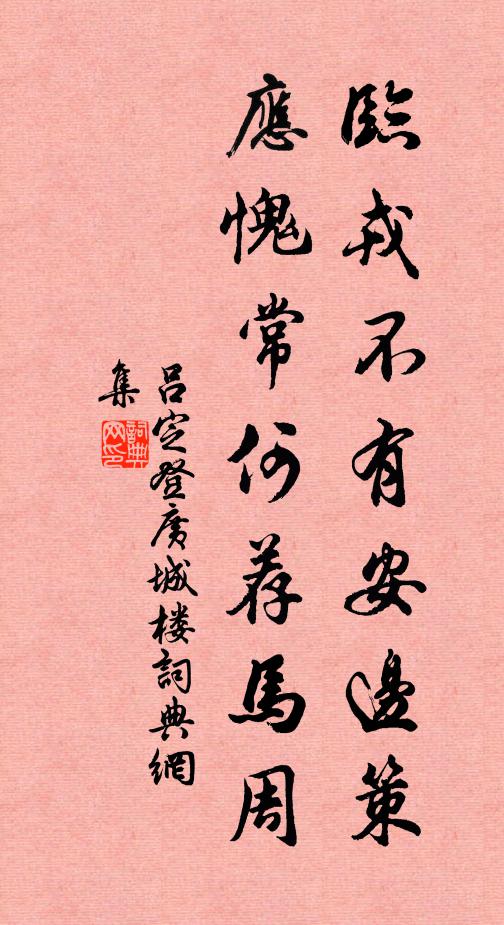 臨戎不有安邊策
應愧常何荐馬周
吕定登廣城楼詞典網
集
詞典网印